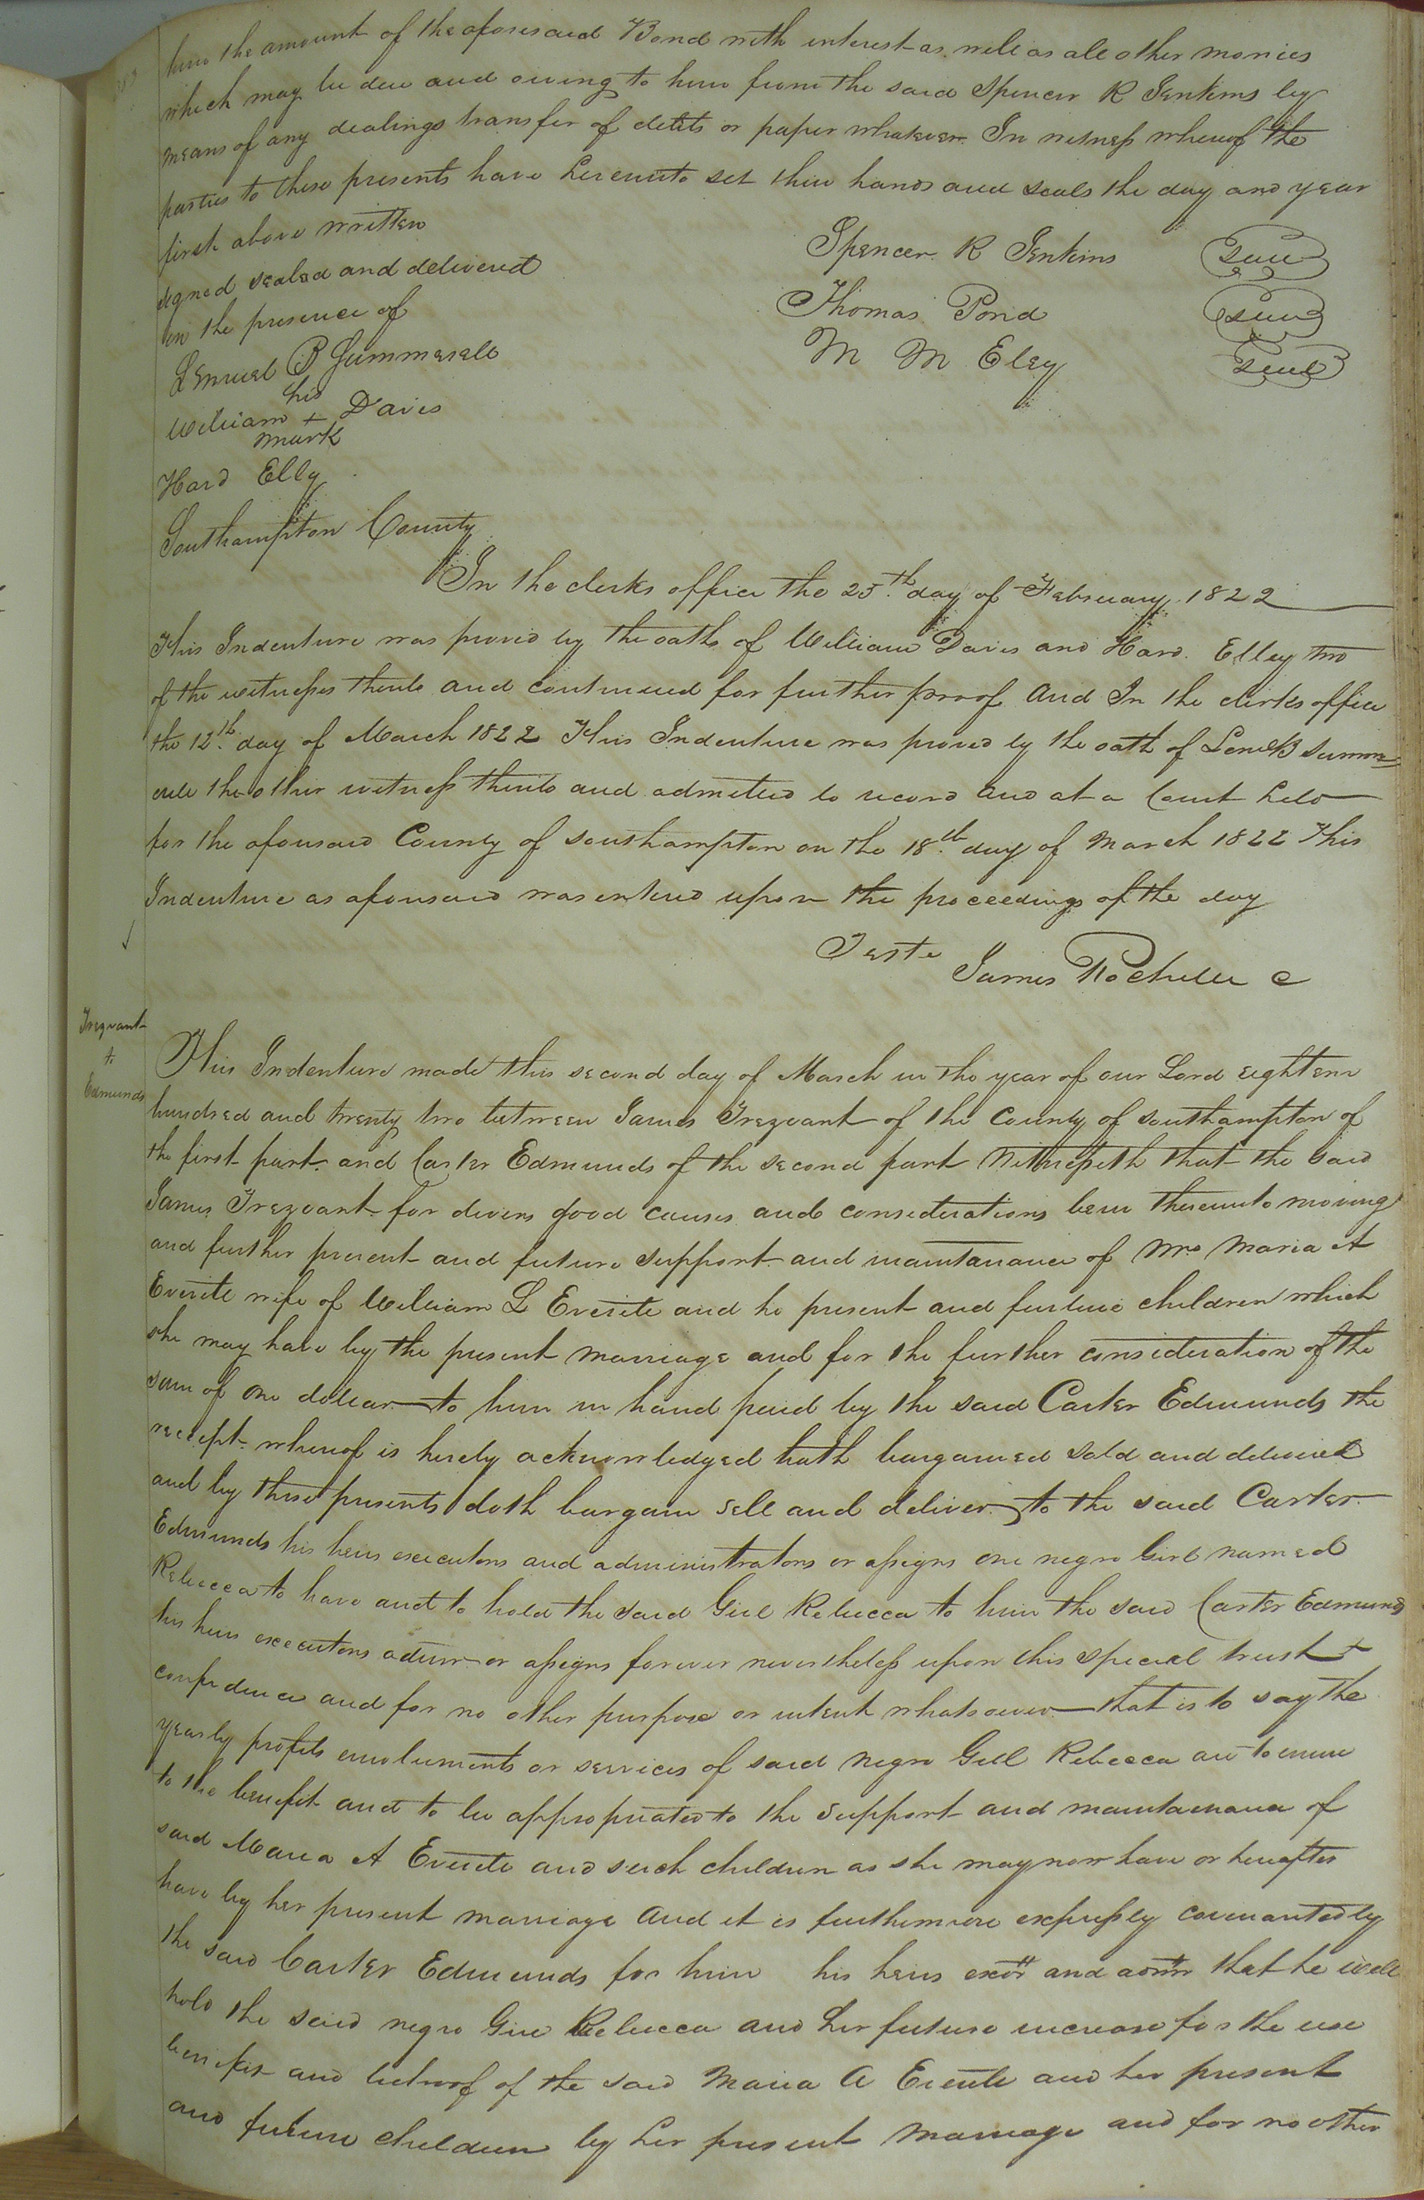 him the amount of the aforesaid Bond with interest as well as all other monies
which may be due and owing to him from the said Spencer R Jenkins by
means of any dealings transfer of debts or paper whatever In witness whereof the
parties to these presents have hereunto set their hands and seals the day and year
first above written
signed sealed and delivered
in the presence of
Spencer R Jenkins seal
Thomas Pond seal
M M Eley seal
Lemuel B Summerell
his
William + Davis
mark
Hard Elly
Southampton County
In the clerks office the 25th day of February 1822
This Indenture was proved by the oaths of William Davis and Hard. Elley two
of the witnesses thereto and continued for further proof And In the clerks office
the 12th day of March 1822 This Indenture was proved by the oath of Leml B Summ=
erell the other witness thereto and admitted to record And at a Court held
for the aforesaid County of Southampton on the 18th day of March 1822 This
Indenture as aforesaid was entered upon the proceedings of the day
Teste
James Rochelle C
Trezvant
to
Edmunds
This Indenture made this second day of March in the year of our Lord eighteen
hundred and twenty two between James Trezvant of the County of Southampton of
the first part and Carter Edmunds of the second part Witnesseth that the said
James Trezvant for divers good causes and considerations him thereunto moving
and further present and future support and maintanance of Mrs Maria A
Everitt wife of William L Everite and he present and future children which
she may have by the present marriage and for the further consideration of the
sum of one dollar to him in hand paid by the said Carter Edmunds the
receipt whereof is hereby acknowledged hath bargained sold and delivered
and by these presents doth bargain sell and deliver to the said Carter
Edmunds his heirs executors and administrators or assigns one negro Girl named
Rebecca to have and to hold the said Girl Rebecca to him the said Carter Edmunds
his heirs executors admr or assigns forever nevertheless upon this special trust &
confidence and for no other purpose or intent whatsoever that is to say the
yearly profits emoluments or services of said negro Girl Rebecca are to enure
to the benefit and to be appropriated to the support and maintainance of
said Maria A Everite and such children as she may now have or hereafter
have by her present marriage And it is furthermore expressly covenanted by
the said Carter Edmunds for him his heirs exors and admrs that he will
hold the said negro Girl Rebecca and her future increase for the use
benefit and behoof of the said Maria A Everite and her present
and future children by her present marriage and for no other